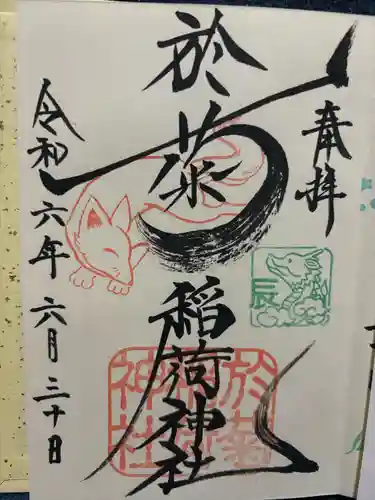 奉拝
於菊稲荷神社
令和六年六月三十日
辰
於菊稲荷神社